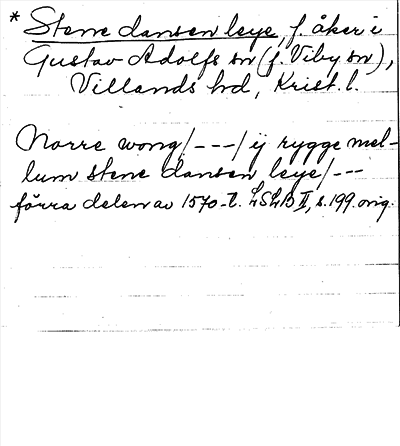 * Stene dansen leye, f. åker i
Gustav Adolfs sn (f. Viby sn),
Villands hd, Krist. l.
Norre wong/---/ij rygge mel-
lum stene dansen leye/---
förra delen av 1570-t. LSLB II, s. 199. orig.